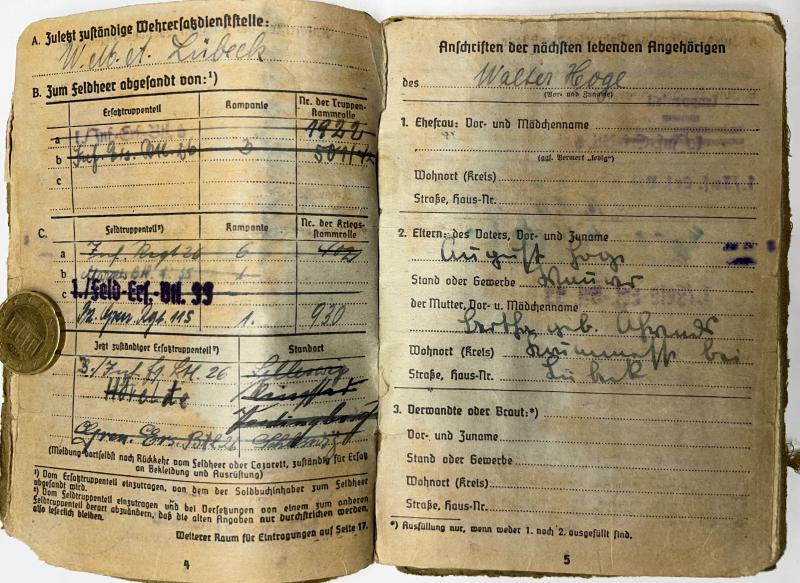 A. Zuletzt zuständige Wehrersatzdienststelle:
W.M.A. Lübeck
B. Zum Feldheer abgesandt von:¹)
Ersatztruppenteil Kompanie Nr. der Truppenstammrolle
a 1922
b 3 501/42
c
C. Feldtruppenteil²) Kompanie Nr. der Kriegsstammrolle
a Inf. Regt 26 6
b
c 1./Feld-Ers.-Btl. 99
Pz. Gren. Rgt. 115 1. 930
Jetzt zuständiger Ersatztruppenteil²) Standort
Gren. Ers. Btl 26
(Meldung dortselbst nach Rückkehr vom Feldheer oder Lazarett, zuständig für Ersatz
an Bekleidung und Ausrüstung)
¹) Vom Ersatztruppenteil einzutragen, von dem der Soldbuchinhaber zum Feldheer
abgesandt wird.
²) Vom Feldtruppenteil einzutragen und bei Versetzungen von einem zum anderen
Feldtruppenteil derart abzuändern, daß die alten Angaben nur durchstrichen werden,
also leserlich bleiben.
Weiterer Raum für Eintragungen auf Seite 17.
4
Anschriften der nächsten lebenden Angehörigen
des Walter Hoge
(Vor- und Zuname)
1. Ehefrau: Vor- und Mädchenname
(ggf. Vermerk „ledig“)
Wohnort (Kreis)
Straße, Haus-Nr.
2. Eltern: des Vaters, Vor- und Zuname
August Hoge
Stand oder Gewerbe Maurer
der Mutter, Vor- u. Mädchenname
Bertha geb. Ahrends
Wohnort (Kreis) Krummesse bei
Straße, Haus-Nr. Lübeck
3. Verwandte oder Braut:*)
Vor- und Zuname
Stand oder Gewerbe
Wohnort (Kreis)
Straße, Haus-Nr.
*) Ausfüllung nur, wenn weder 1. noch 2. ausgefüllt sind.
5